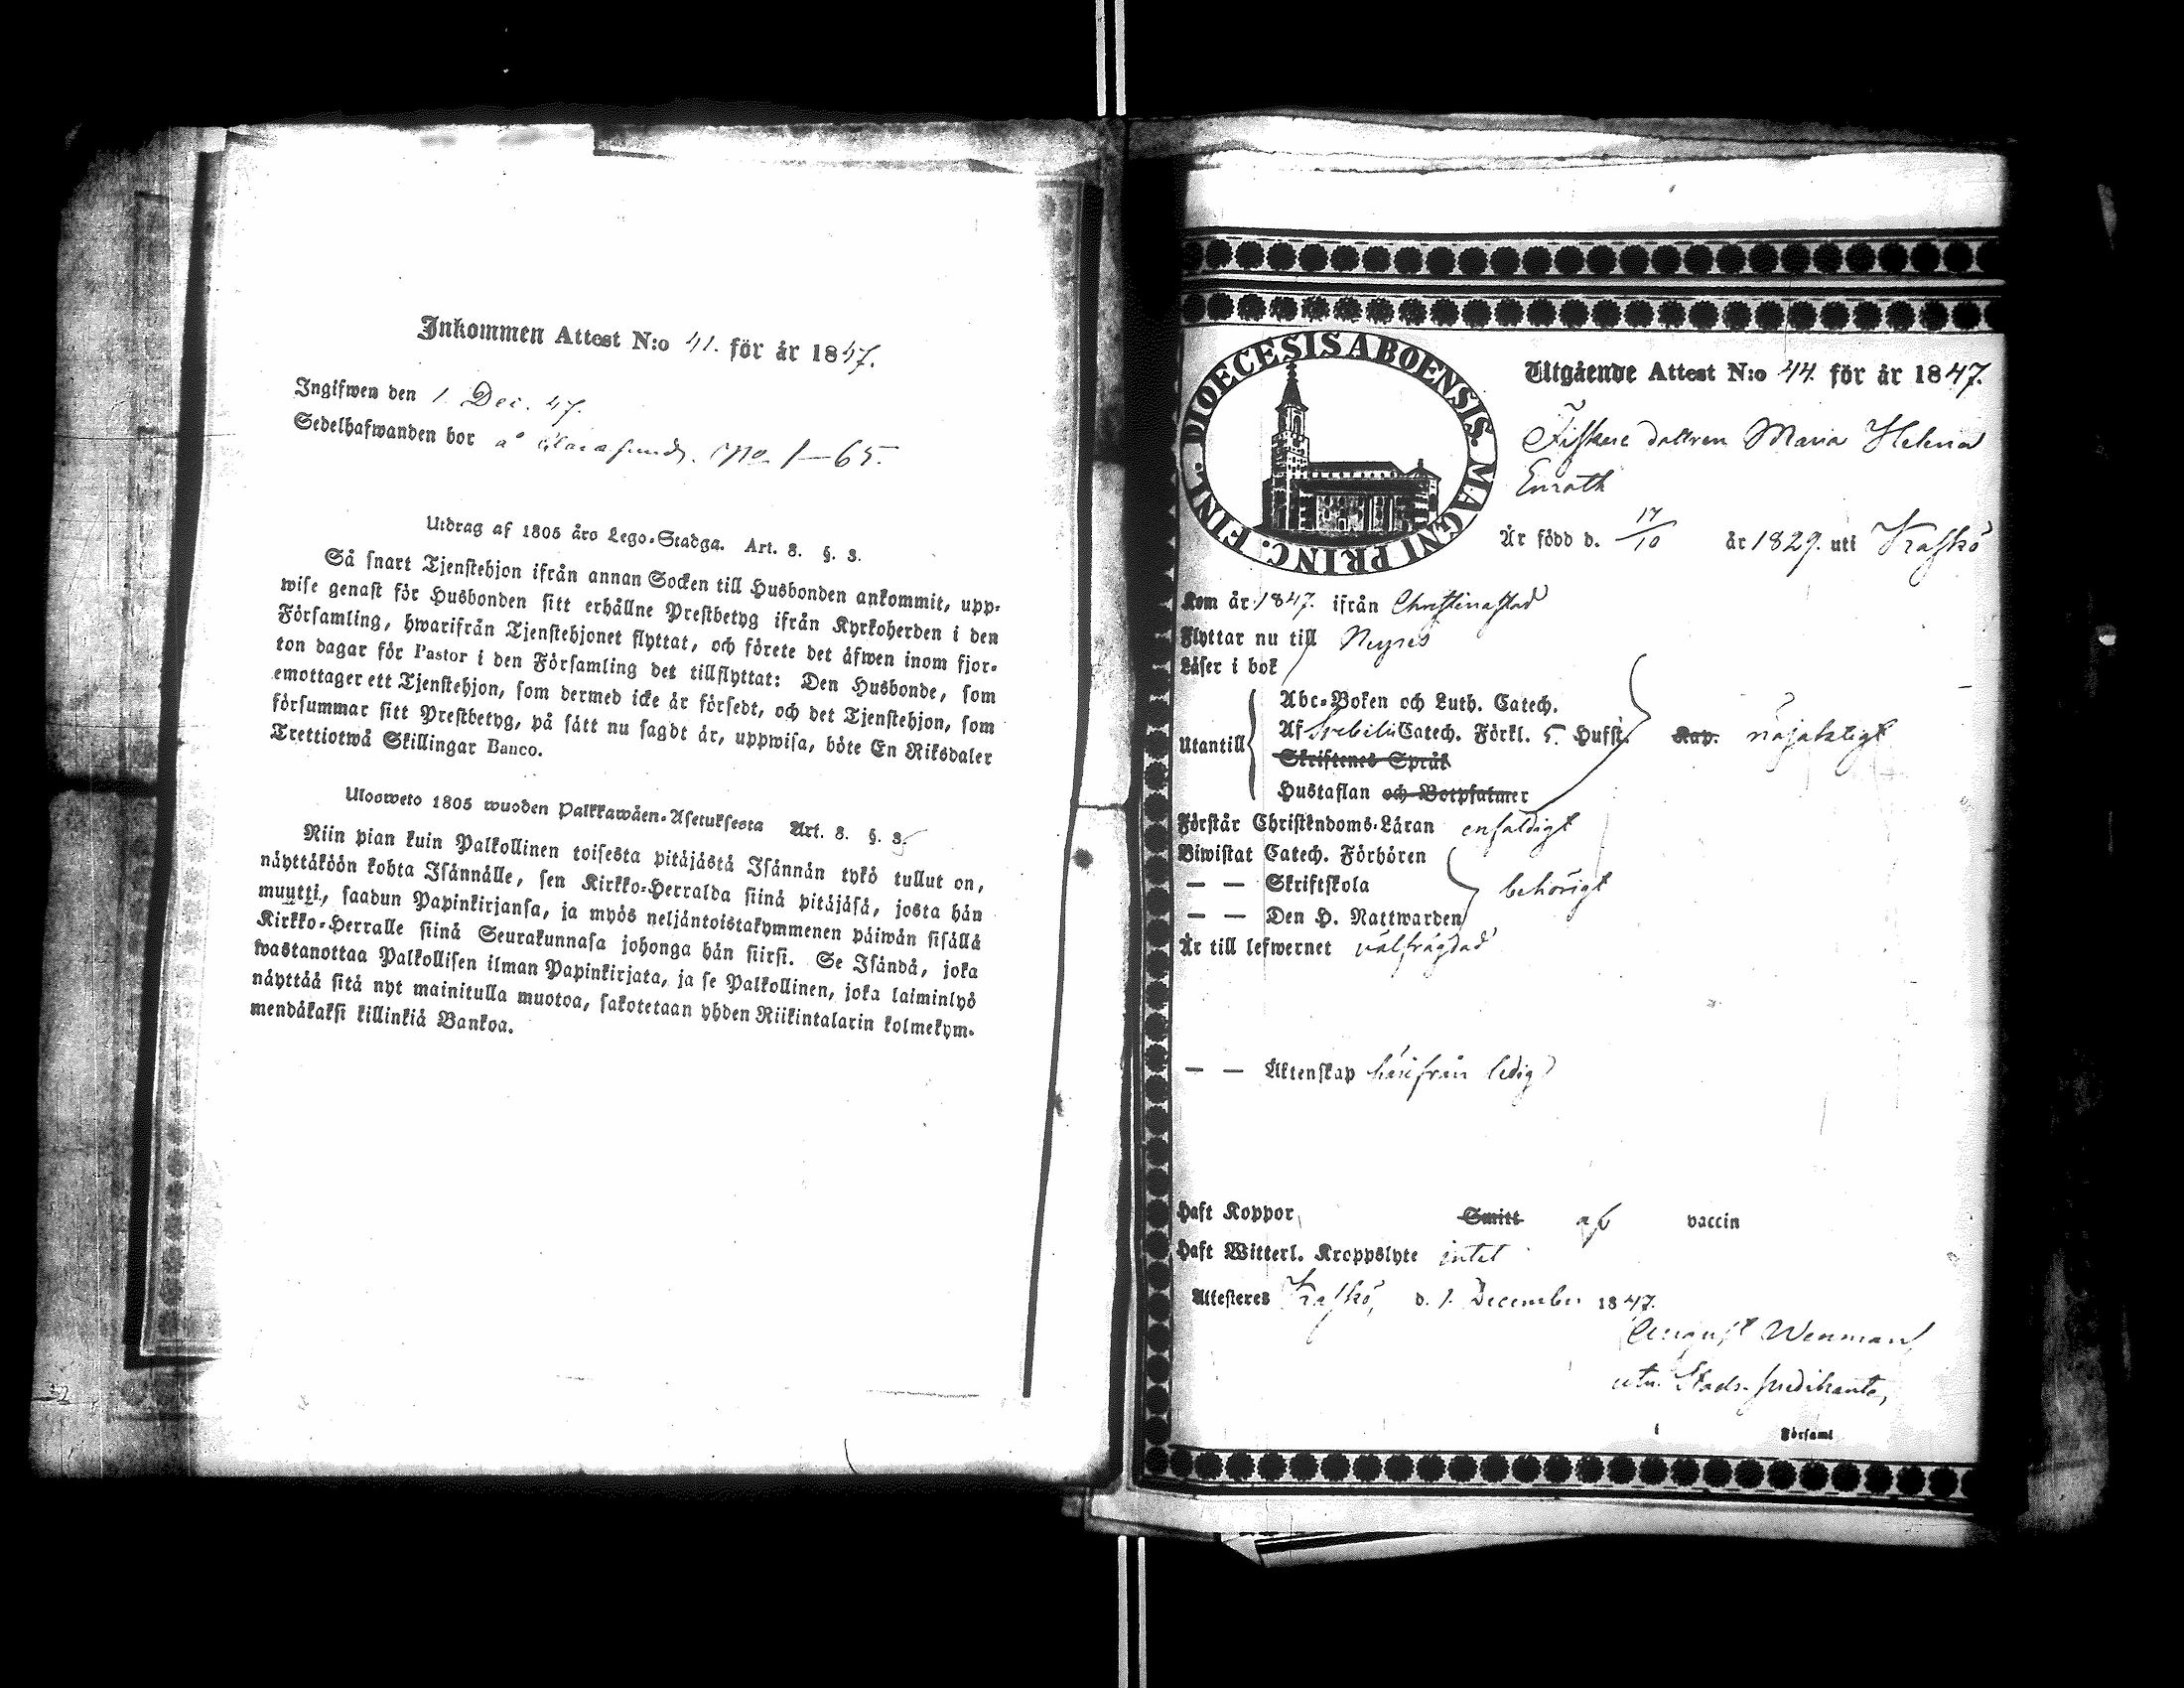 Inkommen Attest N:o 41. för år 1847.
Ingifwen den 1. Dec. 47.
Sedelhafwanden bor å No 1—65.
Utdrag af 1805 åro Lego-Stadga. Art. 8. §. 3.
Så snart Tjenstehjon ifrån annan Socken till Husbonden ankommit, upp-
wise genast för Husbonden sitt erhållne Prestbetyg ifrån Kyrkoherden i den
Församling, hwarifrån Tjenstehjonet flyttat, och förete det äfwen inom fjor-
ton dagar för Pastor i den Församling det tillflyttat: Den Husbonde, som
emottager ett Tjenstehjon, som dermed icke är försedt, och det Tjenstehjon, som
försummar sitt Prestbetyg, på sätt nu sagdt är, uppwisa, böte En Riksdaler
Trettiotwå Skillingar Banco.
Ulosweto 1805 wuoden Palkkawäen-Asetuksesta Art. 8. §. 3.
Niin pian kuin Palkollinen toisesta pitäjästä Isännän tykö tullut on,
näyttäköön kohta Isännälle, sen Kirkko-Herralda siinä pitäjäsä, josta hän
muutti, saadun Papinkirjansa, ja myös neljäntoistakymmenen päiwän sisällä
Kirkko-Herralle siinä Seurakunnasa johonga hän siirsi. Se Isändä, joka
wastanottaa Palkollisen ilman Papinkirjata, ja se Palkollinen, joka laiminlyö
näyttää sitä nyt mainitulla muotoa, sakotetaan yhden Riikintalarin kolmekym-
mendäkaksi killinkiä Bankoa.
DIOECESIS ABOENSIS. MAGNI PRINC. FINL.
Utgående Attest N:o 44. för år 1847.
Fiskare dottren Maria Helena
Enroth
Är född d. 17/10 år 1829. uti Kaskö
Kom år 1847. ifrån Christinastad
Flyttar nu till Nerpes
Läser i bok
Abc-Boken och Luth. Catech.
Utantill Af Svebilii Catech. Förkl. 5. Hufst. Kap. nöjaktigt
Skriftenes Språk
Hustaflan och Botpsalmer
Förstår Christendoms-Läran enfaldigt
Biwistat Catech. Förhören
— — Skriftskola behörigt
— — Den H. Nattwarden
Är till lefwernet välfrägdad
— — Äktenskap härifrån ledig
Haft Koppor Smitt af vaccin
Haft Witterl. Kroppslyte intet
Attesteres Kaskö, d. 1. December 1847.
August Wenman
Stads-predikante,
i Församl